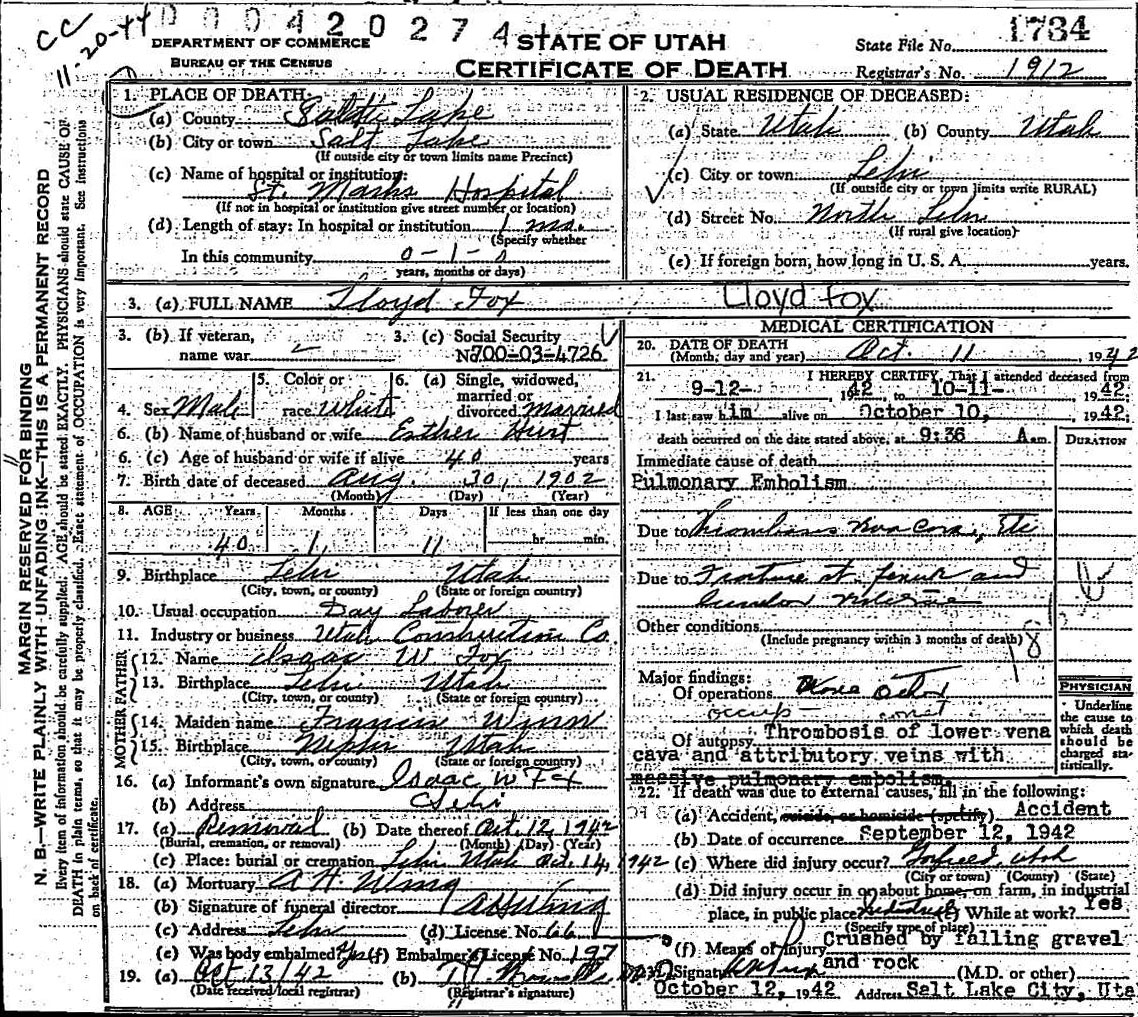 CC
11-20-44
00042027 4
DEPARTMENT OF COMMERCE
BUREAU OF THE CENSUS
STATE OF UTAH
CERTIFICATE OF DEATH
State File No. 1784
Registrar's No. 1912
MARGIN RESERVED FOR BINDING
N. B.—WRITE PLAINLY WITH UNFADING INK—THIS IS A PERMANENT RECORD
Every item of information should be carefully supplied. AGE should be stated EXACTLY. PHYSICIANS should state CAUSE OF
DEATH in plain terms, so that it may be properly classified. Exact statement of OCCUPATION is very important. See instructions
on back of certificate.
1. PLACE OF DEATH
(a) County Salt Lake
(b) City or town Salt Lake
(If outside city or town limits name Precinct)
(c) Name of hospital or institution:
St. Marks Hospital
(If not in hospital or institution give street number or location)
(d) Length of stay: In hospital or institution 1 mo.
(Specify whether
In this community 0-1-0
years, months or days)
2. USUAL RESIDENCE OF DECEASED:
(a) State Utah (b) County Utah
(c) City or town Lehi
(If outside city or town limits write RURAL)
(d) Street No. North Lehi
(If rural give location)
(e) If foreign born, how long in U. S. A. years.
3. (a) FULL NAME Lloyd Fox Lloyd Fox
3. (b) If veteran, name war
3. (c) Social Security
No. 700-03-4726
4. Sex Male
5. Color or race White
6. (a) Single, widowed, married or divorced Married
6. (b) Name of husband or wife Esther Hurt
6. (c) Age of husband or wife if alive 40 years
7. Birth date of deceased Aug. 30, 1902
(Month) (Day) (Year)
8. AGE Years Months Days If less than one day
40 1 11 hr. min.
9. Birthplace Lehi Utah
(City, town, or county) (State or foreign country)
10. Usual occupation Day Laborer
11. Industry or business Utah Construction Co.
FATHER
12. Name Isaac W Fox
13. Birthplace Lehi Utah
(City, town, or county) (State or foreign country)
MOTHER
14. Maiden name Francis Winn
15. Birthplace Nephi Utah
(City, town, or county) (State or foreign country)
16. (a) Informant's own signature Isaac W Fox
(b) Address Lehi
17. (a) Removal (b) Date thereof Oct. 12, 1942
(Burial, cremation, or removal) (Month) (Day) (Year)
(c) Place: burial or cremation Lehi Utah Oct. 14, 1942
18. (a) Mortuary A H. Wing
(b) Signature of funeral director
(c) Address Lehi (d) License No. 66
(e) Was body embalmed? Yes (f) Embalmer's License No. 197
19. (a) Oct 13/42 (b)
(Date received local registrar) (Registrar's signature)
MEDICAL CERTIFICATION
20. DATE OF DEATH
(Month, day and year) Oct. 11, 1942
21. I HEREBY CERTIFY, That I attended deceased from
9-12-, 1942, to 10-11-, 1942.
I last saw him alive on October 10, 1942.
death occurred on the date stated above, at 9:36 A.m. DURATION
Immediate cause of death
Pulmonary Embolism
Due to
Due to Fracture of femur and
Other conditions
(Include pregnancy within 3 months of death)
Major findings:
Of operations
Of autopsy Thrombosis of lower vena
cava and attributory veins with
massive pulmonary embolism.
PHYSICIAN
Underline the cause to which death should be charged statistically.
22. If death was due to external causes, fill in the following:
(a) Accident, suicide, or homicide (specify) Accident
(b) Date of occurrence September 12, 1942
(c) Where did injury occur? Garfield, Utah
(City or town) (County) (State)
(d) Did injury occur in or about home, on farm, in industrial
place, in public place? Industrial While at work? Yes
(Specify type of place)
(f) Means of Injury Crushed by falling gravel
and rock
23. Signature (M.D. or other)
October 12, 1942 Address Salt Lake City, Uta